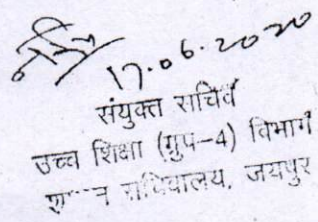 17.06.2020
संयुक्त सचिव
उच्च शिक्षा (ग्रुप-4) विभाग
जयपुर